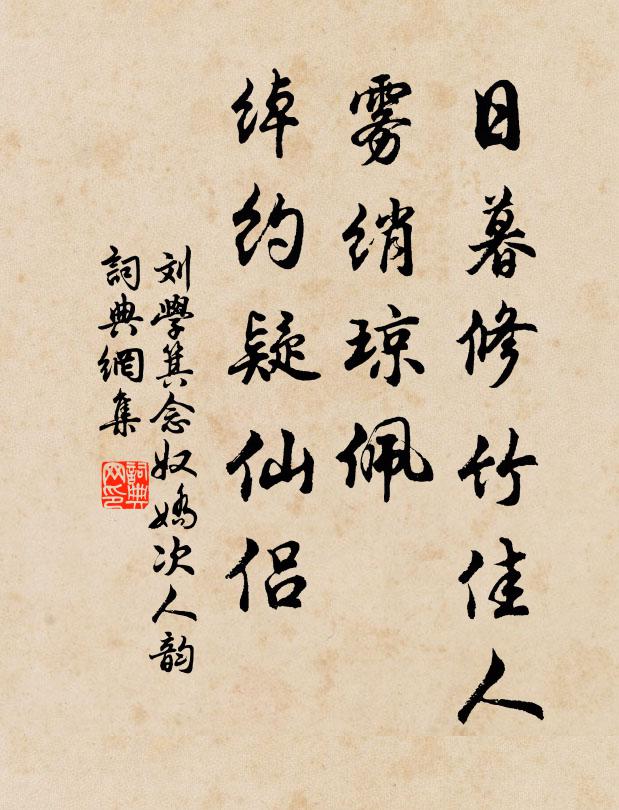 日暮修竹佳人
雾绡琼佩
绰约疑仙侣
刘學箕念奴嬌次人韵
詞典網集
詞典网印